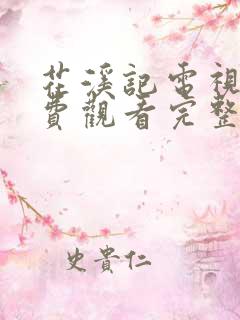 茳溪記電視
費觀看完整
史貴仁